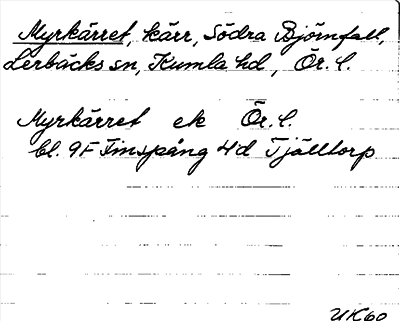 Myrkärret, kärr, Södra Björnfall,
Lerbäcks sn, Kumla hd, Ör. l.
Myrkärret ek Ör. l.
bl. 9F Finspång 4d Tjälltorp
UK60